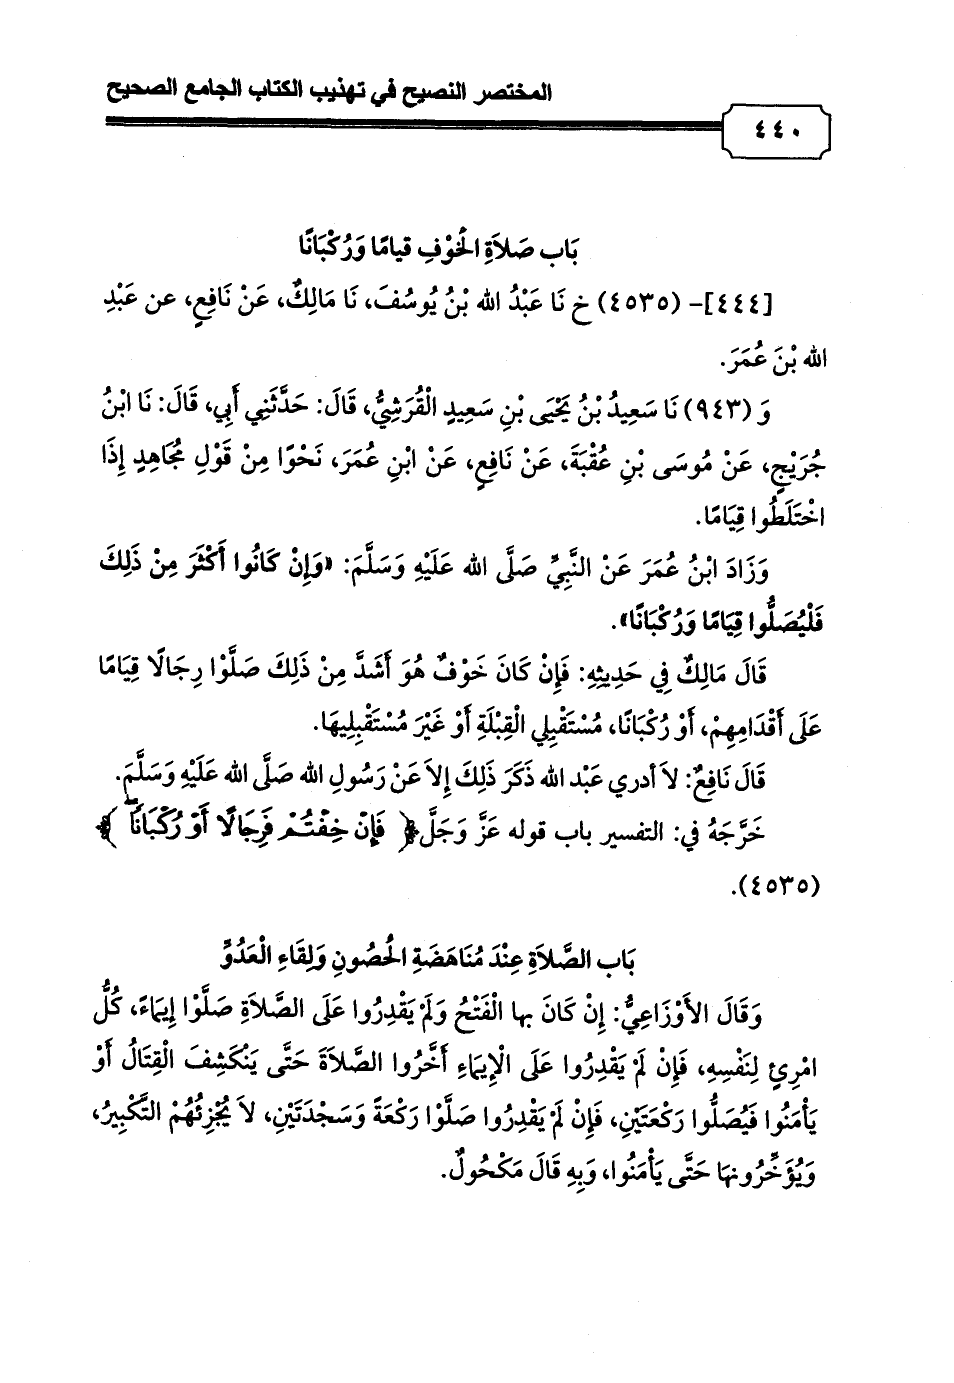 المختصر النصيح في تهذيب الكتاب الجامع الصحيح
٤٤٠
بَاب صَلاَةِ الخَوْفِ قيامًا وَرُكْبَانًا
[٤٤٤]- (٤٥٣٥) خ نَا عَبْدُ الله بْنُ يُوسُفَ، نَا مَالِكٌ، عَنْ نَافِعٍ، عن عَبْدِ
الله بْنَ عُمَرَ.
وَ (٩٤٣) نَا سَعِيدُ بْنُ يَحْيَى بْنِ سَعِيدٍ الْقُرَشِيُّ، قَالَ: حَدَّثَنِي أَبِي، قَالَ: نَا ابْنُ
جُرَيْجٍ، عَنْ مُوسَى بْنِ عُقْبَةَ، عَنْ نَافِعٍ، عَنْ ابْنِ عُمَرَ، نَحْوًا مِنْ قَوْلِ مُجَاهِدٍ إِذَا
اخْتَلَطُوا قِيَامًا.
وَزَادَ ابْنُ عُمَرَ عَنْ النَّبِيِّ صَلَّى الله عَلَيْهِ وَسَلَّمَ: «وَإِنْ كَانُوا أَكْثَرَ مِنْ ذَلِكَ
فَلْيُصَلُّوا قِيَامًا وَرُكْبَانًا».
قَالَ مَالِكٌ فِي حَدِيثِهِ: فَإِنْ كَانَ خَوْفٌ هُوَ أَشَدَّ مِنْ ذَلِكَ صَلَّوْا رِجَالًا قِيَامًا
عَلَى أَقْدَامِهِمْ، أَوْ رُكْبَانًا، مُسْتَقْبِلِي الْقِبْلَةِ أَوْ غَيْرَ مُسْتَقْبِلِيهَا.
قَالَ نَافِعٌ: لاَ أدري عَبْد الله ذَكَرَ ذَلِكَ إِلاَ عَنْ رَسُولِ الله صَلَّى الله عَلَيْهِ وَسَلَّمَ.
خَرَّجَهُ في: التفسير باب قوله عَزَّ وَجَلَّ ﴿ فَإِنْ خِفْتُمْ فَرِجَالًا أَوْ رُكْبَانًا ﴾
(٤٥٣٥).
بَاب الصَّلاَةِ عِنْدَ مُنَاهَضَةِ الحُصُونِ وَلِقَاءِ الْعَدُوِّ
وَقَالَ الأَوْزَاعِيُّ: إِنْ كَانَ بها الْفَتْحُ وَلَمْ يَقْدِرُوا عَلَى الصَّلاَةِ صَلَّوْا إِيمَاءً، كُلُّ
امْرِئٍ لِنَفْسِهِ، فَإِنْ لَمْ يَقْدِرُوا عَلَى الْإِيمَاءِ أَخَّرُوا الصَّلاَةَ حَتَّى يَنْكَشِفَ الْقِتَالُ أَوْ
يَأْمَنُوا فَيُصَلُّوا رَكْعَتَيْنِ، فَإِنْ لَمْ يَقْدِرُوا صَلَّوْا رَكْعَةً وَسَجْدَتَيْنِ، لاَ يُجْزِئُهُمْ التَّكْبِيرُ،
وَيُؤَخِّرُونهَا حَتَّى يَأْمَنُوا، وَبِهِ قَالَ مَكْحُولٌ.